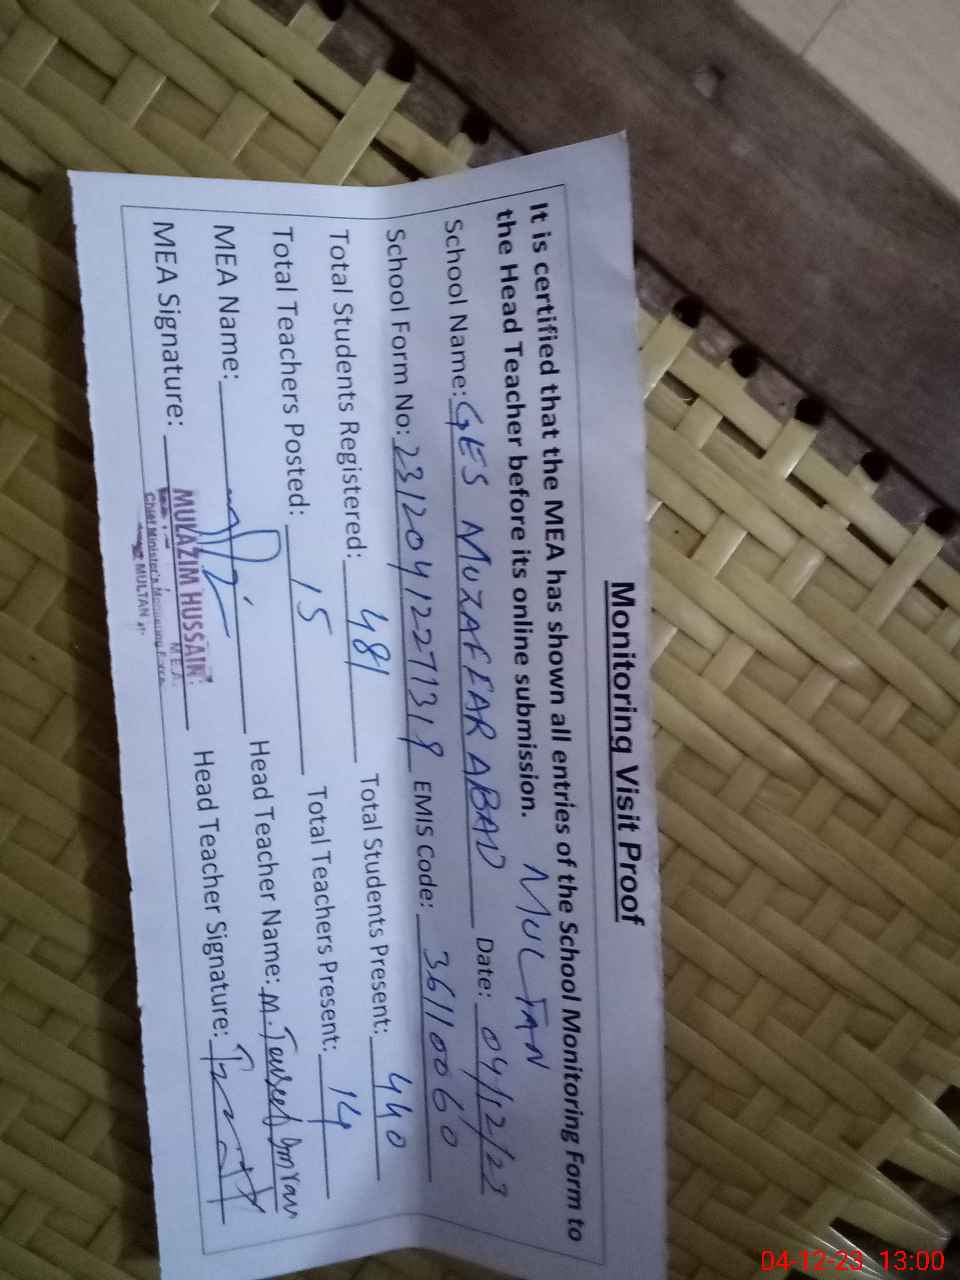 Monitoring Visit Proof
It is certified that the MEA has shown all entries of the School Monitoring Form to
the Head Teacher before its online submission. MULTAN
School Name: GES MUZAFFAR ABAD Date: 04/12/23
School Form No: 23120412271319 EMIS Code: 36110060
Total Students Registered: 481 Total Students Present: 440
Total Teachers Posted: 15 Total Teachers Present: 14
MEA Name: Head Teacher Name: M.
MEA Signature: Head Teacher Signature:
MULAZIM HUSSAIN
M.E.A.
Chief Minister's Monitoring Force
MULTAN
04-12-23 13:00